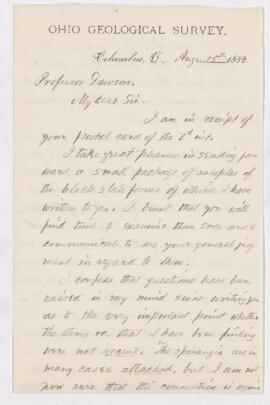 OHIO GEOLOGICAL SURVEY.
Columbus, O., August 5th 1882.
Professor Dawson.
My dear Sir.
I am in receipt of
your postal card of the 1st inst.
I take great pleasure in sending for-
ward a small package of samples of
the black slate forms of which I have
written to you. I trust that you will
find time to examine them soon and to
communicate to me your general judg-
ment in regard to them.
I confess that questions have been
raised in my mind since writing you
as to the very important point whether
the stems &c. that I have been finding
were not recent. The sporangia are in
many cases attached, but I am not
now sure that the connection is organic